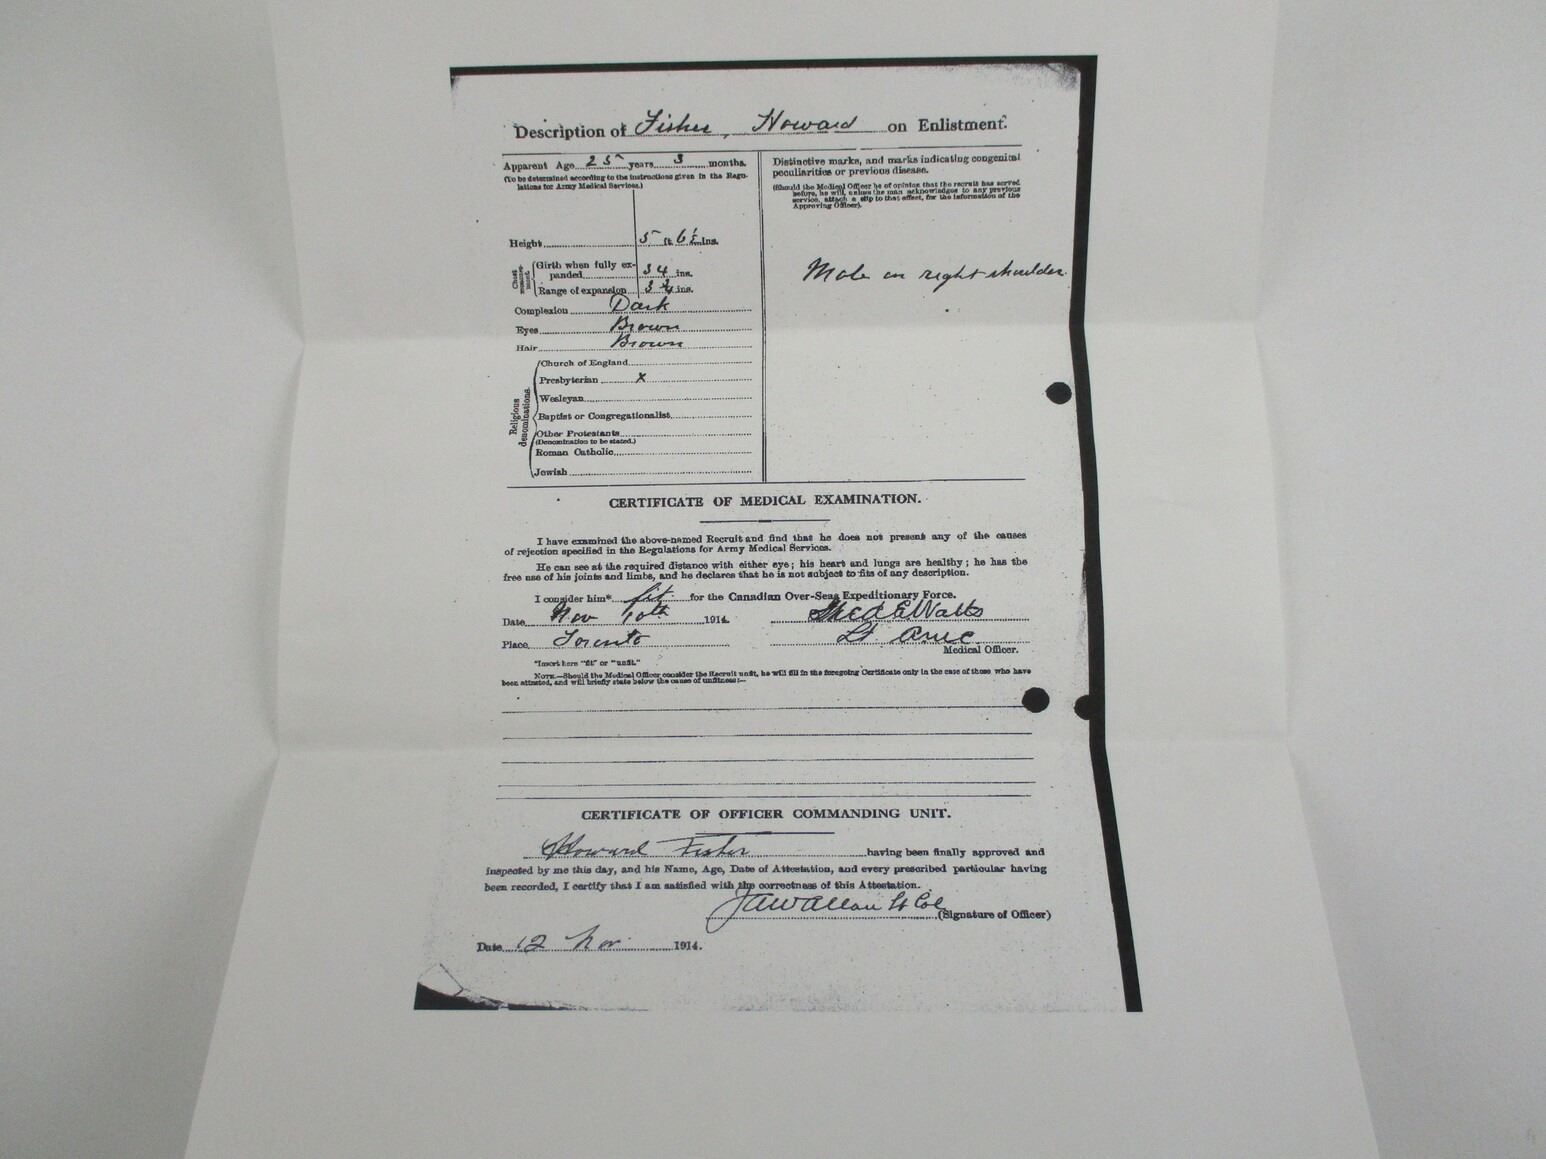 Description of Fisher, Howard on Enlistment.
Apparent Age 25 years 3 months.
(To be determined according to the instructions given in the Regu-
lations for Army Medical Services.)
Height 5 ft. 6½ ins.
Chest
measure-
ment.
Girth when fully ex-
panded 34 ins.
Range of expansion 3 ins.
Complexion Dark
Eyes Brown
Hair Brown
Religious
denominations.
Church of England
Presbyterian x
Wesleyan
Baptist or Congregationalist
Other Protestants
(Denomination to be stated.)
Roman Catholic
Jewish
Distinctive marks, and marks indicating congenital
peculiarities or previous disease.
(Should the Medical Officer be of opinion that the recruit has served
before, he will, unless the man acknowledges to any previous
service, attach a slip to that effect, for the information of the
Approving Officer).
Mole on right shoulder.
CERTIFICATE OF MEDICAL EXAMINATION.
I have examined the above-named Recruit and find that he does not present any of the causes
of rejection specified in the Regulations for Army Medical Services.
He can see at the required distance with either eye; his heart and lungs are healthy; he has the
free use of his joints and limbs, and he declares that he is not subject to fits of any description.
I consider him* fit for the Canadian Over-Seas Expeditionary Force.
Date Nov 10th 1914.
Place Toronto
Watts
Lt AMC
Medical Officer.
*Insert here "fit" or "unfit."
NOTE.—Should the Medical Officer consider the Recruit unfit, he will fill in the foregoing Certificate only in the case of those who have
been attested, and will briefly state below the cause of unfitness:—
CERTIFICATE OF OFFICER COMMANDING UNIT.
Howard Fisher having been finally approved and
inspected by me this day, and his Name, Age, Date of Attestation, and every prescribed particular having
been recorded, I certify that I am satisfied with the correctness of this Attestation.
Allan Lt Col (Signature of Officer)
Date 12 Nov 1914.